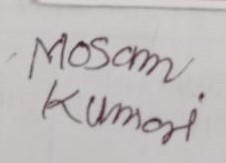 Mosam
Kumari